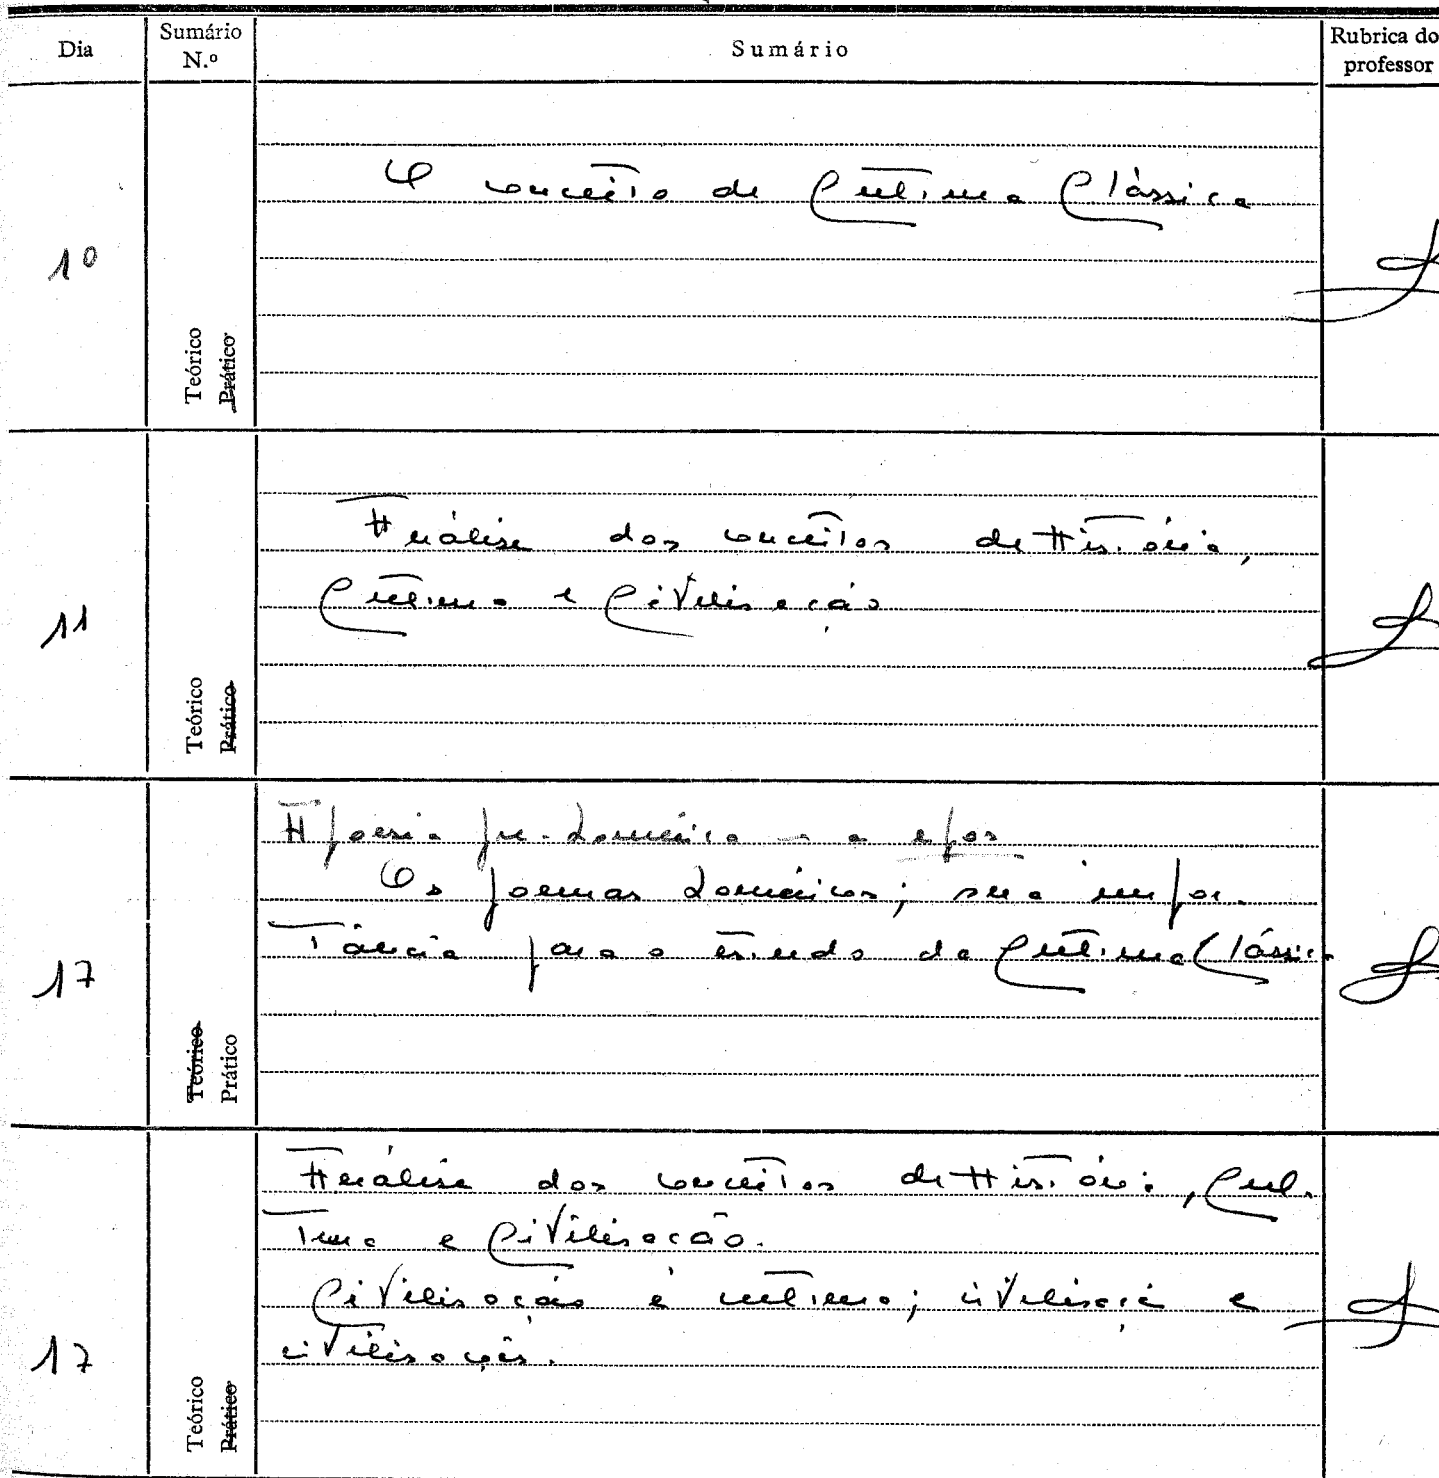 Dia Sumário N.º Sumário Rubrica do professor
O conceito de Cultura Clássica
10
Teórico
Prático
Análise dos conceitos de História,
Cultura e Civilização
11
Teórico
Prático
A poesia pre-homérica — o epos
Os poemas homéricos; sua impor-
tância para o estudo da Cultura Clássica
17
Teórico
Prático
Análise dos conceitos de História, Cul-
tura e Civilização.
Civilização e cultura; civilização e
civilizações.
17
Teórico
Prático